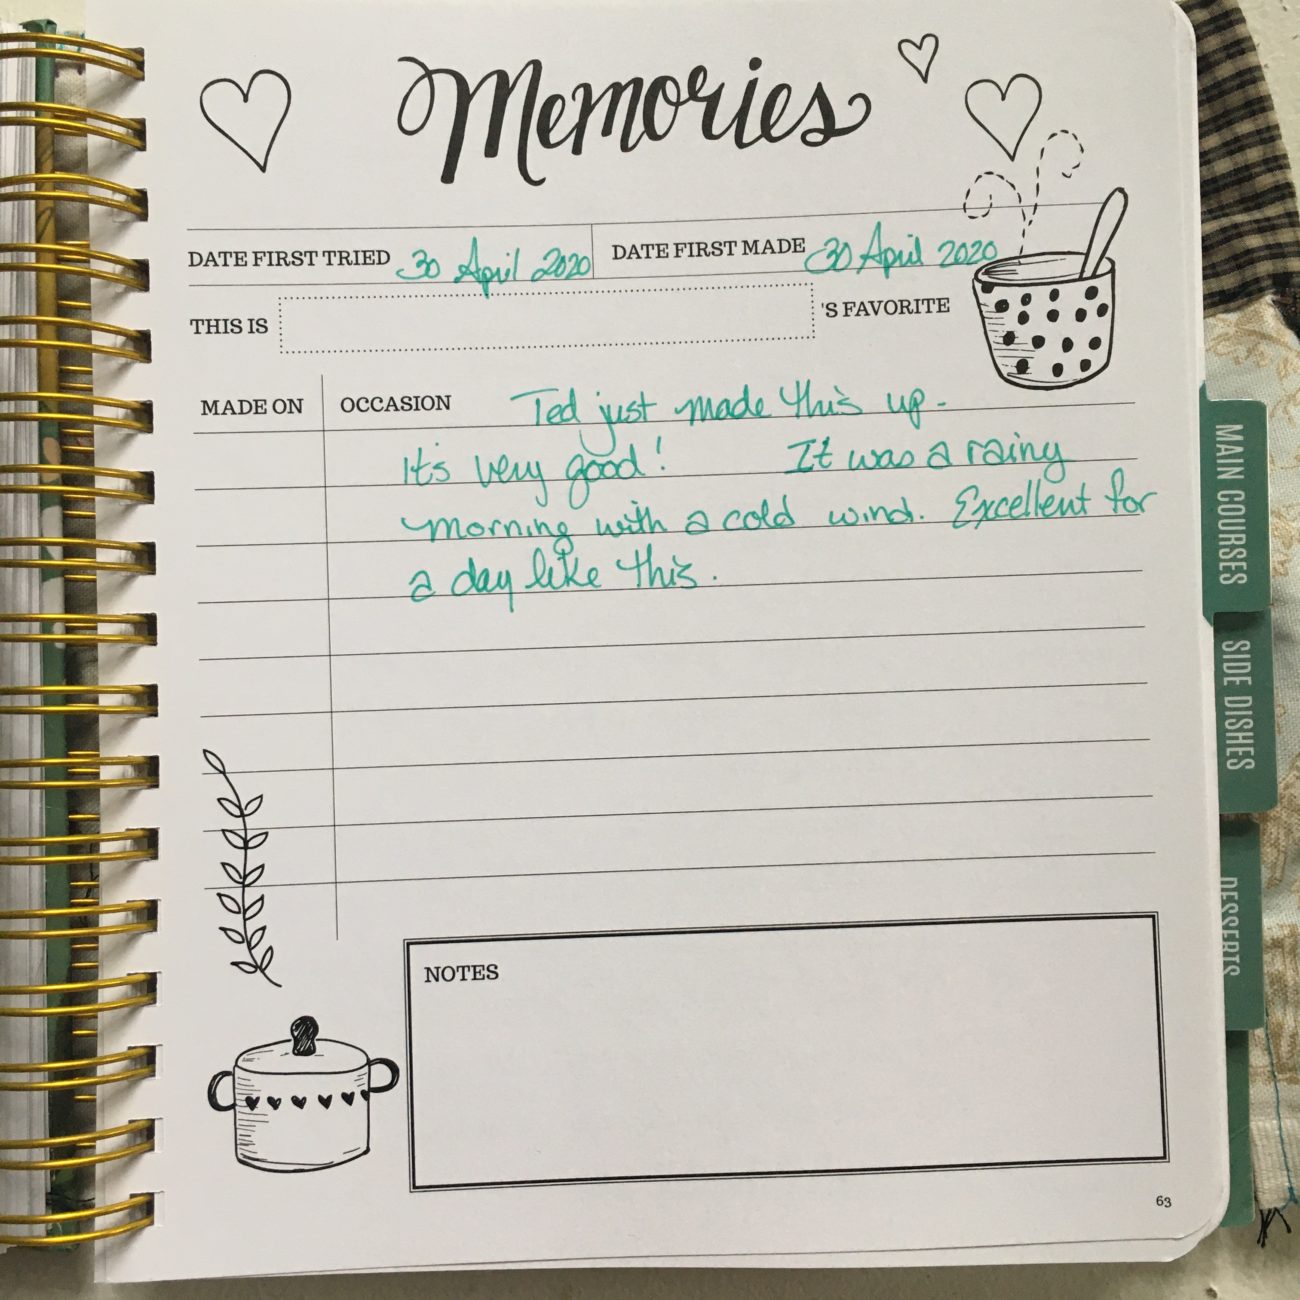 Memories
DATE FIRST TRIED 30 April 2020 DATE FIRST MADE 30 April 2020
THIS IS 'S FAVORITE
MADE ON OCCASION Ted just made this up.
It's very good! It was a rainy
morning with a cold wind. Excellent for
a day like this.
NOTES
63
MAIN COURSES
SIDE DISHES
DESSERTS